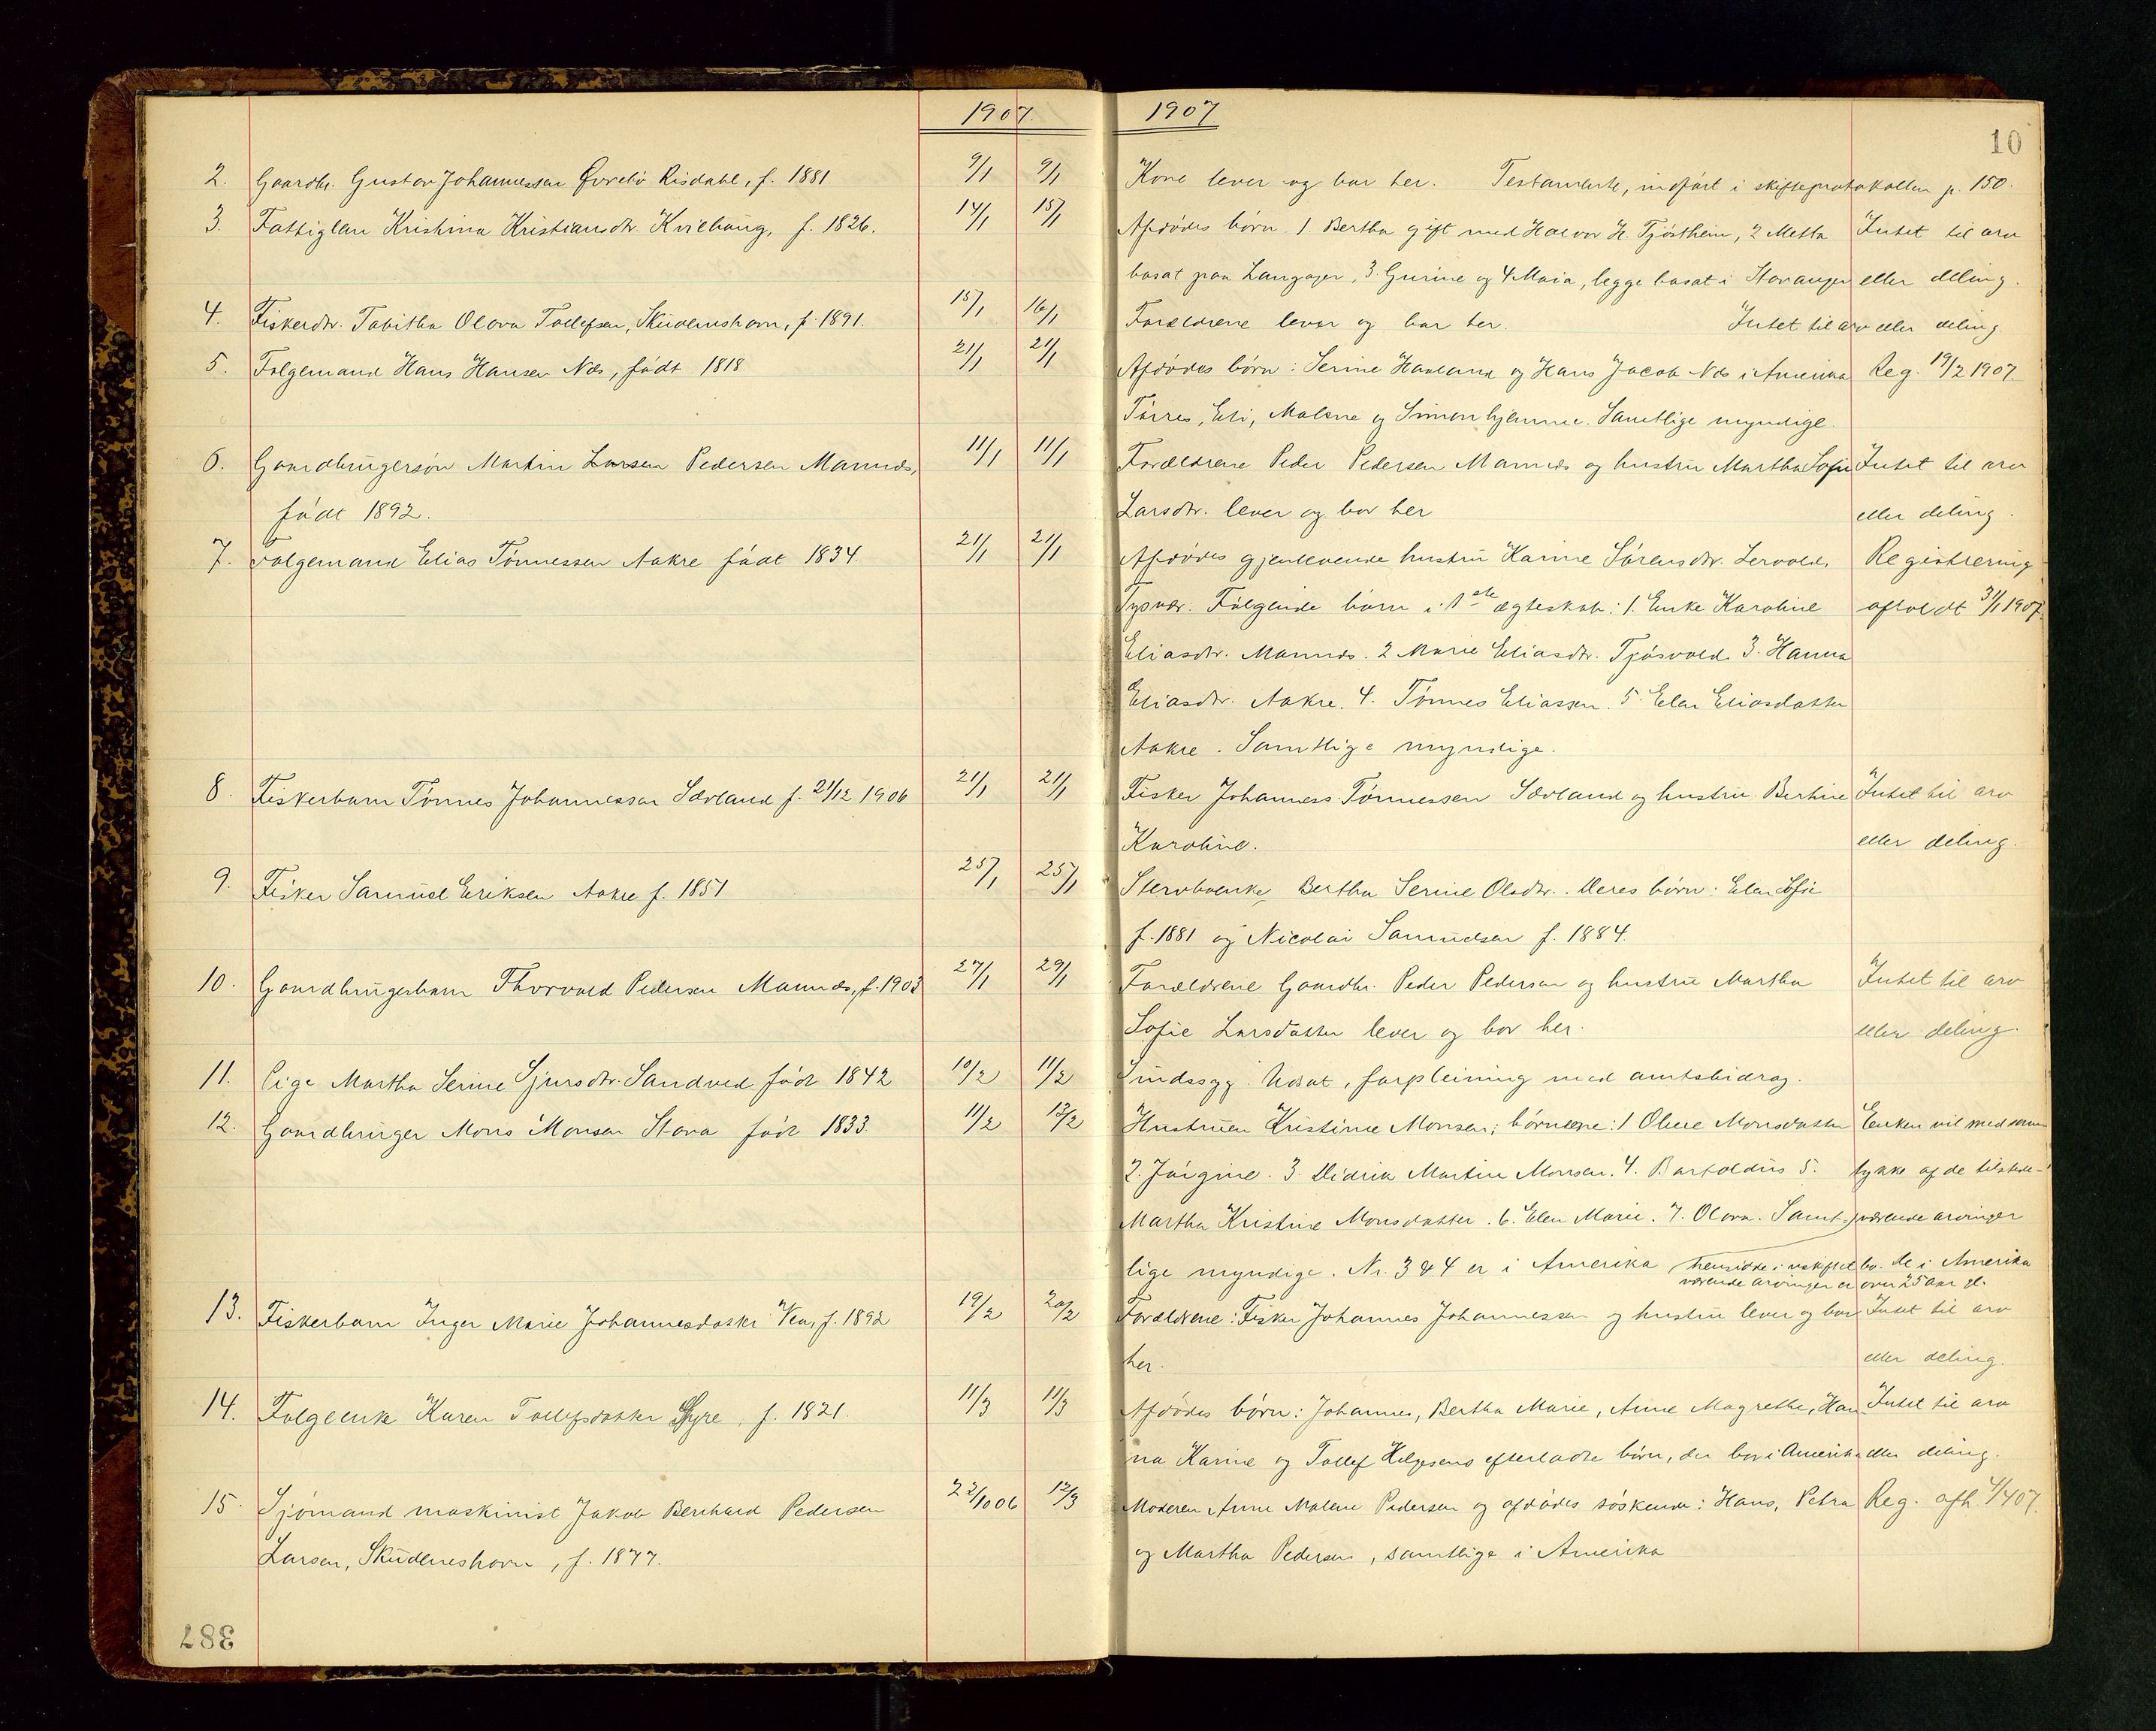 1907 1907
10
2. Gaardbr. Gustav Johannessen Øvrebö Risdahl, f. 1881. 9/1 9/1 Kone lever og bor her. Testamente, indfört i skifteprotokollen p. 150.
3. Fattiglem Kristina Kristiansdtr. Kvilhaug, f. 1826. 14/1 15/1 Afdödes börn 1 Bertha gift med Halvor H. Tjöstheim, 2 Metta Intet til arv
bosat paa Langager, 3. Gurine og 4 Maia, begge bosat i Stavanger eller deling.
4. Fiskerdtr. Tabitha Olava Tollefsen, Skudeneshavn, f. 1891. 15/1 16/1 Forældrene lever og bor her. Intet til arv eller deling.
5. Folgemand Hans Hansen Nes, födt 1818 21/1 21/1 Afdödes börn: Serine Hauland og Hans Jacob Nes i Amerika Reg. 19/2 1907.
Törres, Eli, Malene og Simon hjemme. Samtlige myndige.
6. Gaardbrugersön Martin Larsen Pedersen Mannes, 11/1 11/1 Forældrene Peder Pedersen Mannes og hustru Martha Sofie Intet til arv
födt 1892. Larsdtr. lever og bor her eller deling.
7. Folgemand Elias Tönnessen Aakre födt 1834. 21/1 21/1 Afdödes gjenlevende hustru Karine Sörensdtr. Lervold, Registrering
Tysvær. Fölgende börn i 1ste ægteskab: 1. Enke Karoline afholdt 31/1 1907.
Eliasdtr. Mannes. 2 Marie Eliasdtr. Tjösvold. 3. Hanna
Eliasdtr. Aakre. 4. Tönnes Eliassen. 5. Elen Eliasdatter
Aakre. Samtlige myndige.
8. Fiskerbarn Tönnes Johannessen Sævland f. 21/12 1906 21/1 21/1 Fisker Johannes Tönnessen Sævland og hustru Bertine Intet til arv
Karoline. eller deling.
9. Fisker Samuel Eriksen Aakre f. 1851 25/1 25/1 Stervboenke, Bertha Serine Olsdtr. Deres börn: Elen Sofie
f. 1881 og Nicolai Samuelsen f. 1884.
10. Gaardbrugerbarn Thorvald Pedersen Mannes, f. 1903 27/1 29/1 Forældrene Gaardbr. Peder Pedersen og hustru Martha Intet til arv
Sofie Larsdatter lever og bor her. eller deling.
11. Pige Martha Serine Sjursdtr. Sandved födt 1842 10/2 11/2 Sindssyg. Udsat, forpleining med amtsbidrag.
12. Gaardbruger Mons Monsen Stava födt 1833. 11/2 13/2 Hustruen Kristine Monsen; börnene: 1 Oline Monsdatter Enken vil med sam-
2. Jörgine. 3. Didrik Martin Monsen. 4. Bartoldus 5. tykke af de tilstede-
Martha Kristine Monsdatter. 6. Elen Marie. 7. Olava. Samt- værende arvinger
lige myndige. Nr. 3 & 4 er i Amerika hensidde i uskiftet bo. De i Amerika
værende arvinger er over 25 aar gl.
13. Fiskerbarn Inger Marie Johannesdatter Vea, f. 1892 19/2 20/2 Forældrene: Fisker Johannes Johannessen og hustru lever og bor Intet til arv
her. eller deling.
14. Folgeenke Karen Tollefsdatter Syre, f. 1821. 11/3 11/3 Afdödes börn: Johannes, Bertha Marie, Anne Magrethe, Han- Intet til arv
na Karine og Tollef Helgesens efterladte börn, der bor i Amerika eller deling.
15. Sjömand maskinist Jakob Bernhard Pedersen 22/10 06 12/3 Moderen Anne Malene Pedersen og afdödes söskende: Hans, Petra Reg. afh. 4/4 07.
Larsen, Skudeneshavn, f. 1877. og Martha Pedersen, samtlige i Amerika
387